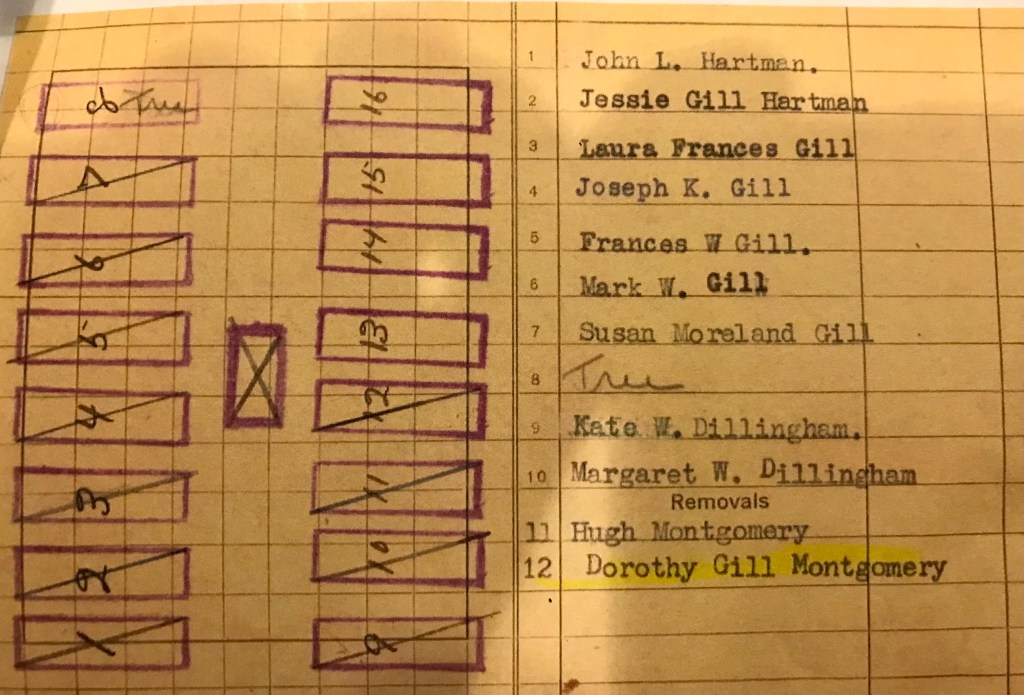 8 Tree
7
6
5
4
3
2
1
16
15
14
13
12
11
10
9
1 John L. Hartman.
2 Jessie Gill Hartman
3 Laura Frances Gill
4 Joseph K. Gill
5 Frances W Gill.
6 Mark W. Gill
7 Susan Moreland Gill
8 Tree
9 Kate W. Dillingham.
10 Margaret W. Dillingham
Removals
11 Hugh Montgomery
12 Dorothy Gill Montgomery